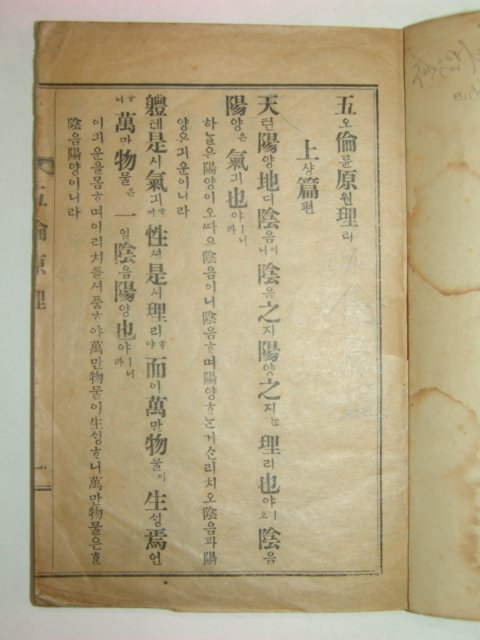 五오倫륜原원理리
上상篇편
天텬陽양地디陰음이니陰음之지陽양之지는理리也야ㅣ오陰음
陽양은氣긔也야ㅣ니라
하늘은陽양이오따으陰음이니陰음ᄒᆞ며陽양ᄒᆞ는거슨리치오陰음과陽
양은긔운이니라
軆톄是시氣긔ᄒᆞ며性셩是시理리ᄒᆞ야而이萬만物물이生ᄉᆡᆼ焉언
ᄒᆞ니萬만物물은一일陰음陽양也야ㅣ니라
이긔운을몸ᄒᆞ며이리치를셩품ᄒᆞ야萬만物물이生ᄉᆡᆼᄒᆞ니萬만物물은ᄒᆞᆫ
陰음陽양이니라
五倫原理
一